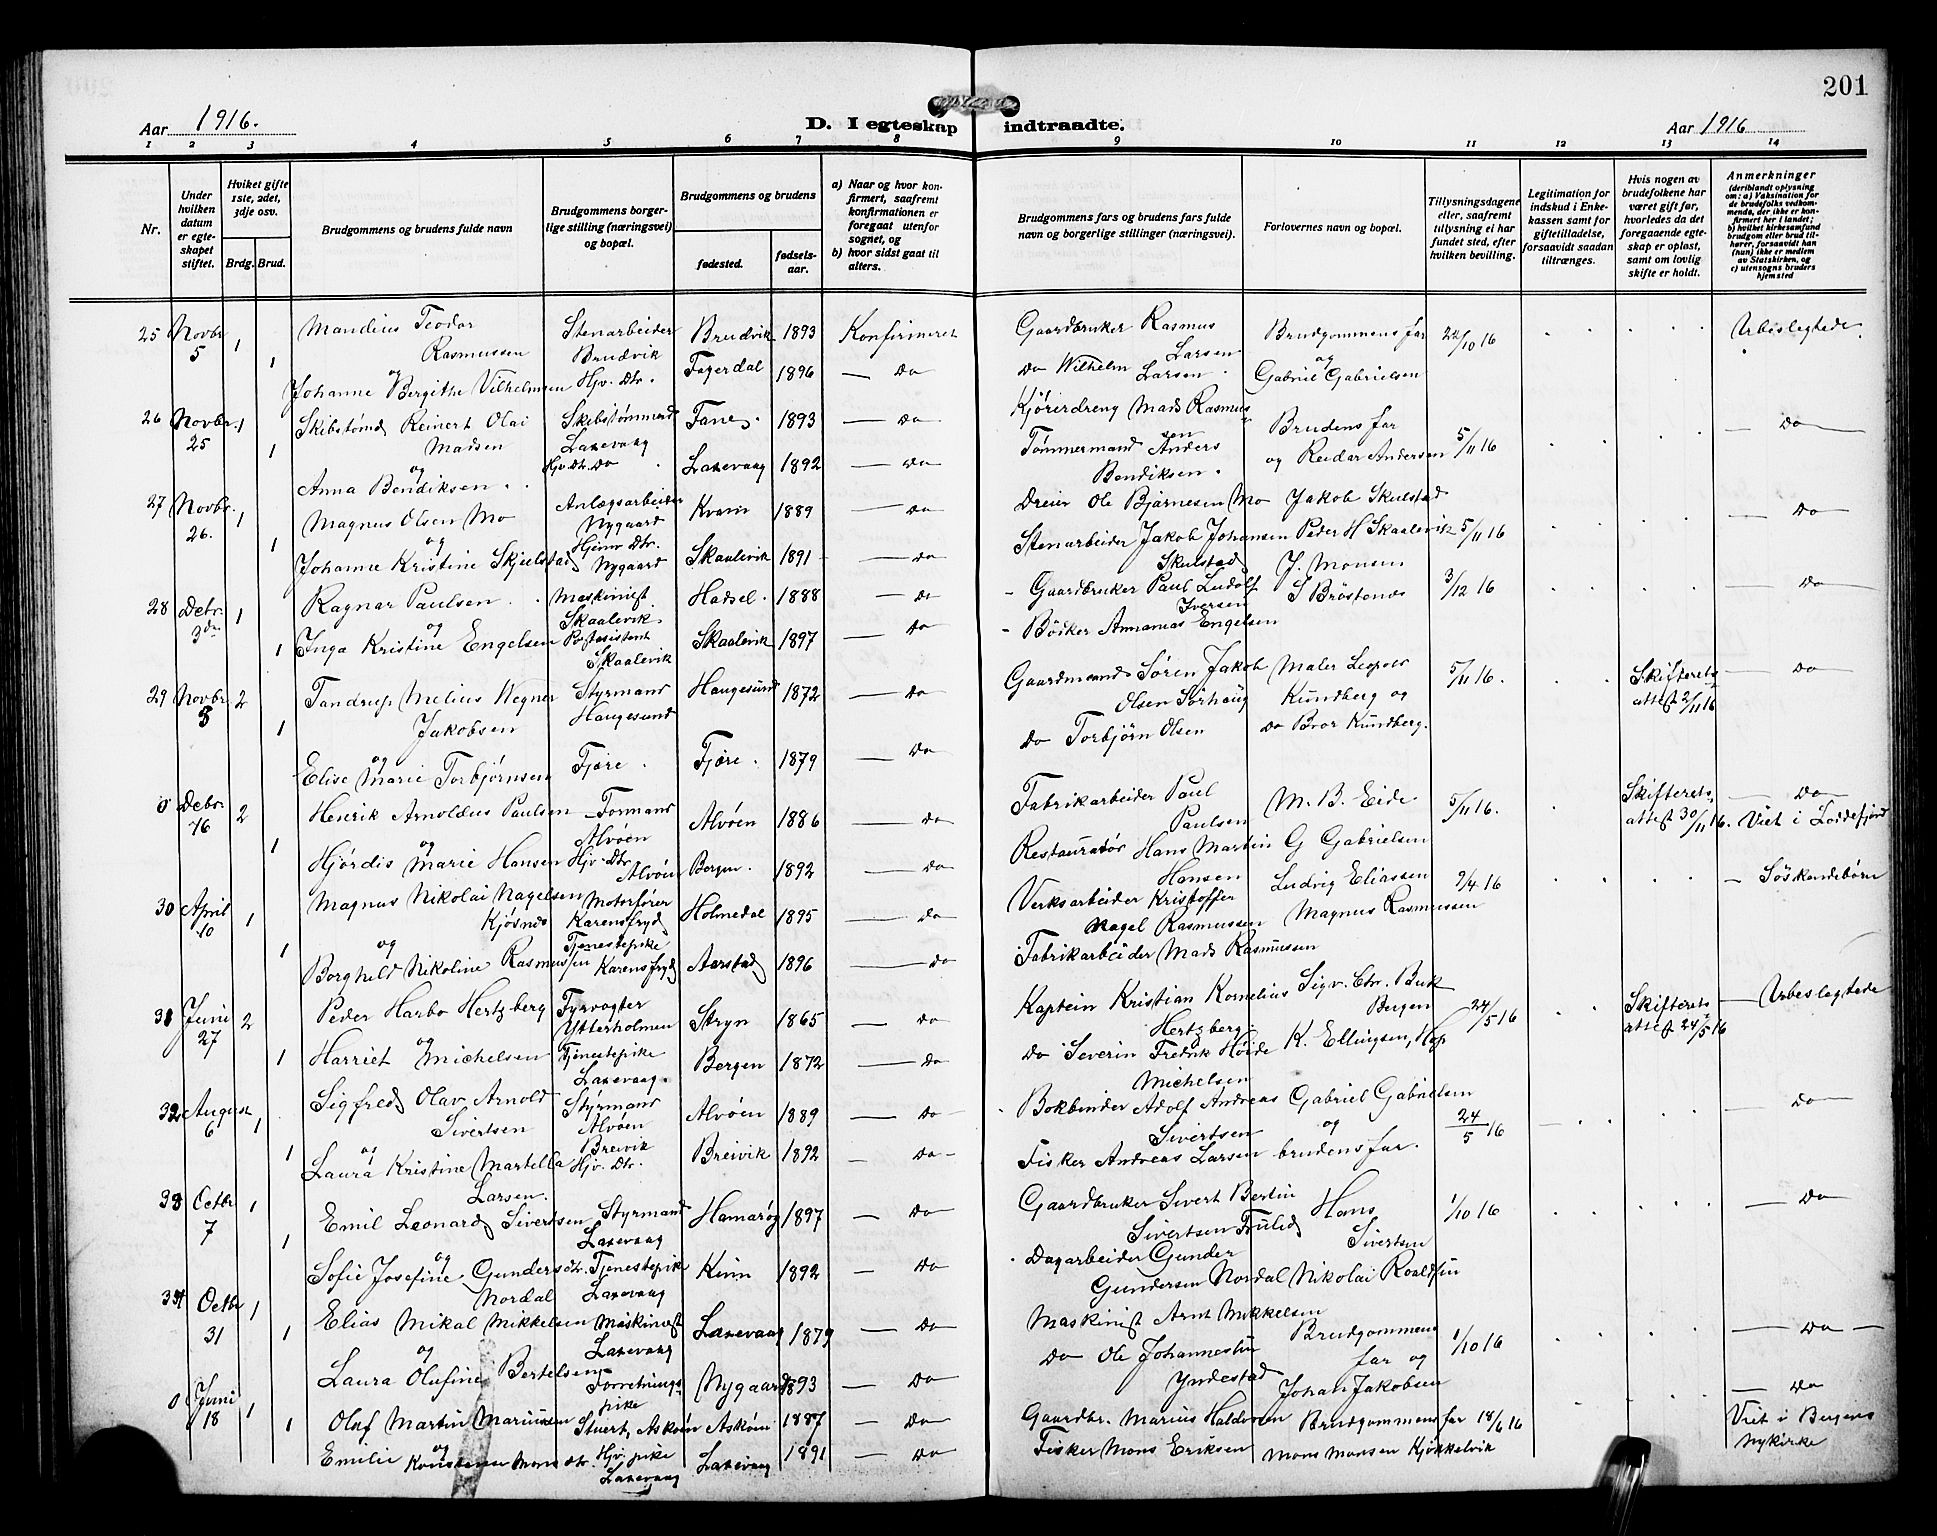 201
Aar 1916.
D. I egteskap indtraadte.
Aar 1916
1 2 3 4 5 6 7 8 9 10 11 12 13 14
Nr.
Under hvilken datum er egteskapet stiftet.
Hviket gifte 1ste, 2det, 3dje osv.
Brdg. Brud.
Brudgommens og brudens fulde navn
Brudgommens borgerlige stilling (næringsvei) og bopæl.
Brudgommens og brudens
fødested.
fødselsaar.
a) Naar og hvor konfirmert, saafremt konfirmationen er foregaat utenfor sognet, og
b) hvor sidst gaat til alters.
Brudgommens fars og brudens fars fulde navn og borgerlige stillinger (næringsvei).
Forlovernes navn og bopæl.
Tillysningsdagene eller, saafremt tillysning ei har fundet sted, efter hvilken bevilling.
Legitimation for indskud i Enkekassen samt for giftetilladelse, forsaavidt saadan tiltrænges.
Hvis nogen av brudefolkene har været gift før, hvorledes da det foregaaende egteskap er opløst, samt om lovlig skifte er holdt.
Anmerkninger
(deriblandt oplysning om: a) Vaksination for de brudefolks vedkommende, der ikke er konfirmert her i landet; b) hvilket kirkesamfund brudgom eller brud tilhører, forsaavidt han (hun) ikke er medlem av Statskirken, og c) utensogns bruders hjemsted
25 Novbr 5 1 Mandius Teodor Rasmussen Stenarbeider Bruvik Bruvik 1893 Konfirmeret Gaardbruker Rasmus Larsen Brudgommens far 22/10 16 Ubeslegtede
og
1 Johanne Bergithe Vilhelmsen Hjv. Dtr. Fagerdal 1896 — Do Do Wilhelm Larsen og Gabriel Gabrielsen
26 Novbr. 25 1 Skibstømd Reinert Olai Madsen Skibstømmerd Laxevaag Fane 1893 — Do Kjøredreng Mads Rasmussen Brudens far 5/11 16 — Do
og
1 Anna Bendiksen Hjv. Dtr. Do Laxevaag 1892 — Do Tømmermand Anders Bendiksen. og Reidar Andersen
27 Novbr. 26. 1 Magnus Olsen Mo Anlægsarbeider Nygaard Kvam 1889 — Do Dreier Ole Bjarnesen Mo Jakob Skulstad 5/11 16 — Do
og
1 Johanne Kristine Skjelstad Hjemv Dtr. Nygaard Skaalevik 1891 — Do Stenarbeider Jakob Johansen Skulstad Peder H Skaalevik
28 Debr. 3die 1 Ragnar Paulsen Maskinist Skaalevik. Hadsel. 1888 — Do Gaardbruker Paul Ludolf Iversen J. Monsen 3/12 16 — Do
og
1 Inga Kristine Engelsen Postasistent Skaalevik Skaalevik 1897 — Do Bødker Annanias Engelsen
29 Novbr. 8 2 Tandrup Melius Wegner Jakobsen Styrmand Haugesund Haugesund 1872 — Do Gaardmand Søren Jakob Olsen Sørhaug Maler Leopold Kundberg og 5/11 16. Skifterets attest 2/11 16 — Do
og
1 Elise Marie Torbjørnsen Fjære Fjære. 1879 — Do Do Torbjørn Olsen Do Bror Kundberg.
0 Debr. 16 2 Henrik Arnoldus Paulsen Formand Alvøen Alvøen 1886 — Do Fabrikarbeider Paul Paulsen M. B. Eide 5/11 16. Skifterets attest 30/11 16. — Do Viet i Loddefjord
og
1 Hjørdis Marie Hansen Hjv. Dtr. Alvøen Bergen. 1892 — Do Restauratør Hans Martin Hansen G Gabrielsen
30 April 10 1 Magnus Nikolai Nagelsen Kjøsnes Motorfører Karensfryd Holmedal 1895 — Do Verksarbeider Kristoffer Nagel Rasmussen Ludvig Eliassen 9/4 16 — Søskendebørn
og
1 Borghild Nikoline Rasmussen Tjenestepike Karensfryd Aarstad 1896 — Do Fabrikarbeider Mads Rasmussen Magnus Rasmussen
31 Juni 27 2 Peder Harbo Hertzberg Fyrvogter Ytterholmen Stryn 1865 — Do Kaptein Kristian Kornelius Hertzberg. Sigv. Chr. Bull Bergen 24/5 16 Skifterets attest 24/5 16 — Ubeslegtede
og
1 Harriet Michelsen Tjenestepike Laxevaag. Bergen 1872 — Do Do Severin Fredrik Høide Michelsen K. Ellingsen, Hop
32 August 6 1 Sigfred Olav Arnold Sivertsen Styrmand Alvøen Alvøen 1889 — Do Bokbinder Adolf Andreas Sivertsen Gabriel Gabrielsen 24/5 16 — Do
og
1 Laura Kristine Martella Larsen. Breivik Hjv. Dtr. Breivik 1892 — Do Fisker Andreas Larsen og brudens far.
33 Octbr 7 1 Emil Leonard Sivertsen Styrmand Laxevaag Hamarøy 1897 — Do Gaardbruker Sivert Bertin Sivertsen Hans Sivertsen 1/10 16 — Do
og
1 Sofie Josefine Gundersdtr. Nordal Tjenestepik Laxevaag Kinn 1892 — Do Dagarbeider Gunder Gundersen Nordal Nikolai Roaldsen
34 Octbr 31 1 Elias Mikal Mikkelsen Maskinist Laxevaag Laxevaag 1879 — Do Maskinist Arnt Mikkelsen Brudgommens far og 1/10 16 — Do —
og
1 Laura Olufine Bertelsen Forretnings- pike Nygaard 1893 — Do Do Ole Johannessen Yndestad Johan Jakobsen
0 Juni 18 1 Olaf Martin Mariussen Stuert, Askøen Askøen 1887 — Do Gaardbr. Marius Haldorsen Brudgommens far 18/6 16 — Do Viet i Bergens Nykirke
og
1 Emilie Konstanse Mons dtr. Hjv. pike Laxevaag Laxevaag 1891 — Do Fisker Mons Eriksen Mons Monsen Kjøkkelvik